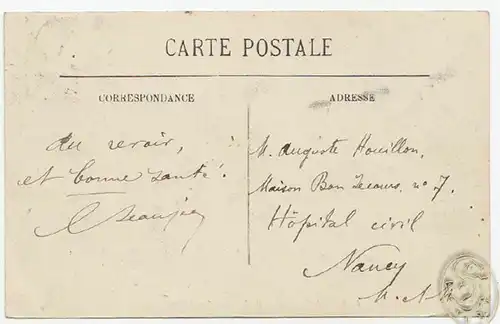 CARTE POSTALE
CORRESPONDANCE
au revoir,
et bonne santé.
ADRESSE
M. Auguste Houillon,
Maison Bon Secours, no 7.
Hôpital civil
Nancy
M. & M.